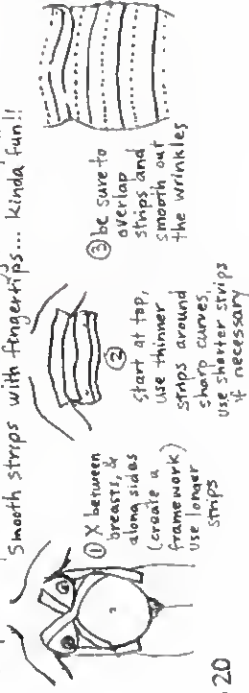 Smooth strips with fingertips... Kinda fun!!
① X between
breasts, &
along sides
(create a
framework)
Use longer
strips
②
start at top,
use thinner
strips around
sharp curves,
use shorter strips
if necessary
③ be sure to
overlap
strips and
smooth out
the wrinkles
20